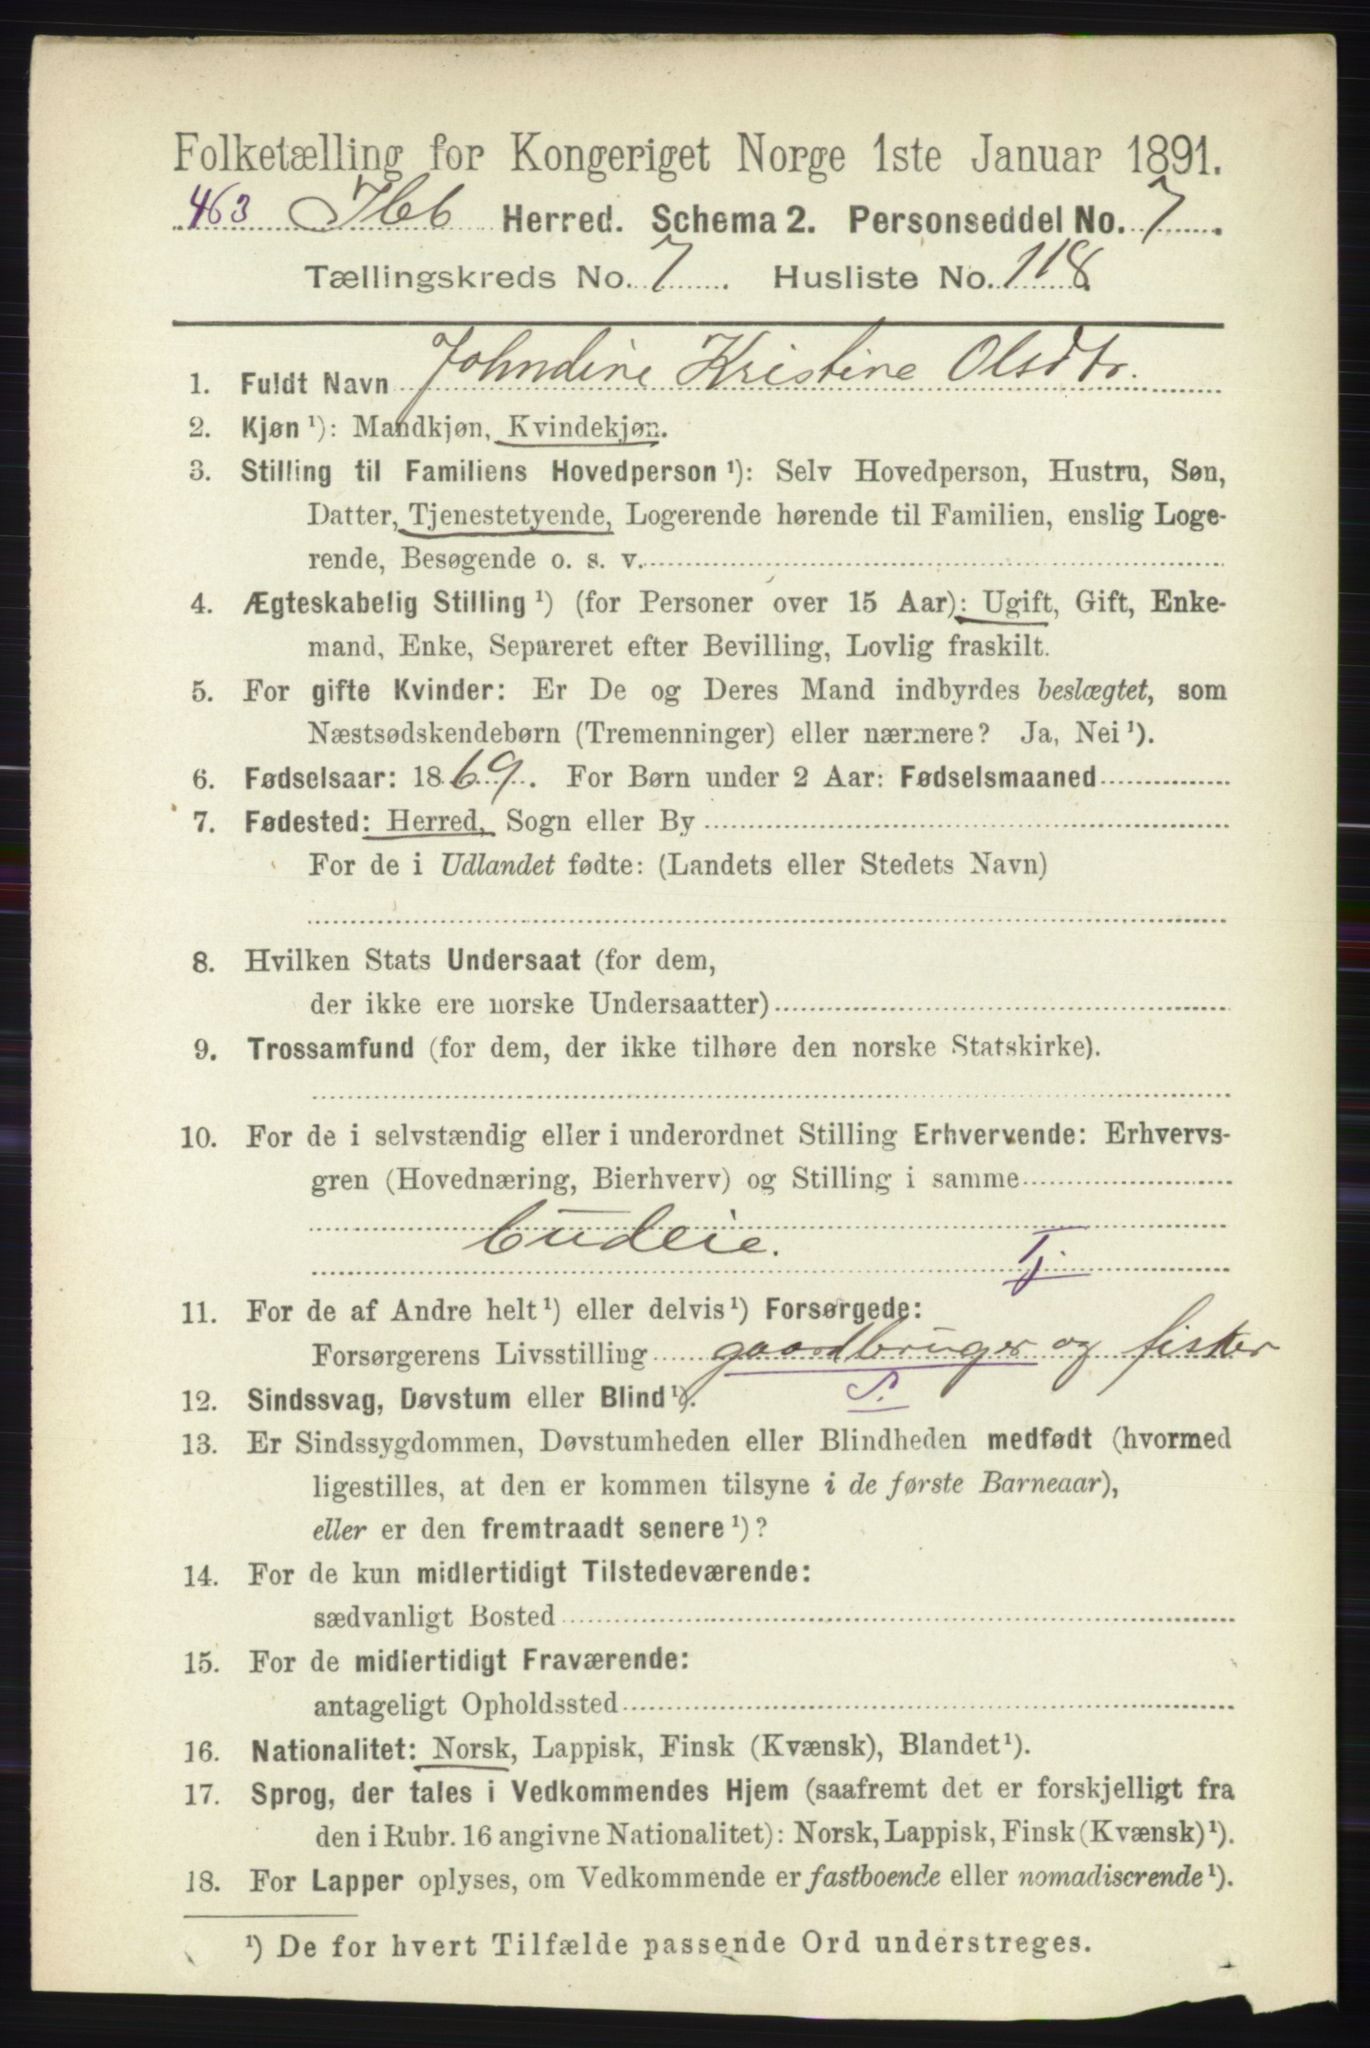 Folketælling for Kongeriget Norge 1ste Januar 1891.
463 Herred. Schema 2. Personseddel No. 7.
Tællingskreds No. 7. Husliste No. 118
1. Fuldt Navn Johndine Kristine Olsdtr.
2. Kjøn ¹): Mandkjøn, Kvindekjøn.
3. Stilling til Familiens Hovedperson ¹): Selv Hovedperson, Hustru, Søn,
Datter, Tjenestetyende, Logerende hørende til Familien, enslig Loge-
rende, Besøgende o. s. v.
4. Ægteskabelig Stilling ¹) (for Personer over 15 Aar): Ugift, Gift, Enke-
mand, Enke, Separeret efter Bevilling, Lovlig fraskilt.
5. For gifte Kvinder: Er De og Deres Mand indbyrdes beslægtet, som
Næstsødskendebørn (Tremenninger) eller nærmere? Ja, Nei ¹).
6. Fødselsaar: 1869. For Børn under 2 Aar: Fødselsmaaned
7. Fødested: Herred, Sogn eller By
For de i Udlandet fødte: (Landets eller Stedets Navn)
8. Hvilken Stats Undersaat (for dem,
der ikke ere norske Undersaatter)
9. Trossamfund (for dem, der ikke tilhøre den norske Statskirke).
10. For de i selvstændig eller i underordnet Stilling Erhvervende: Erhvervs-
gren (Hovednæring, Bierhverv) og Stilling i samme
budeie.
Tj.
11. For de af Andre helt ¹) eller delvis ¹) Forsørgede:
Forsørgerens Livsstilling gaardbruger og fisker
S.
12. Sindssvag, Døvstum eller Blind ¹).
13. Er Sindssygdommen, Døvstumheden eller Blindheden medfødt (hvormed
ligestilles, at den er kommen tilsyne i de første Barneaar),
eller er den fremtraadt senere ¹)?
14. For de kun midlertidigt Tilstedeværende:
sædvanligt Bosted
15. For de midlertidigt Fraværende:
antageligt Opholdssted
16. Nationalitet: Norsk, Lappisk, Finsk (Kvænsk), Blandet ¹).
17. Sprog, der tales i Vedkommendes Hjem (saafremt det er forskjelligt fra
den i Rubr. 16 angivne Nationalitet): Norsk, Lappisk, Finsk (Kvænsk) ¹).
18. For Lapper oplyses, om Vedkommende er fastboende eller nomadiserende ¹).
¹) De for hvert Tilfælde passende Ord understreges.